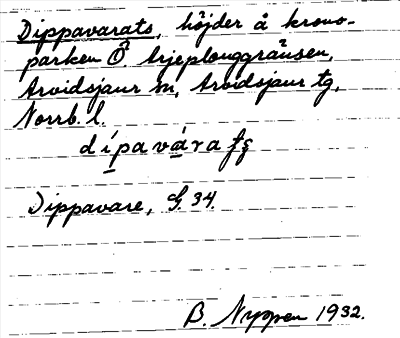 Dippavarats, höjder å krono-
parken Ö Arjeplouggränsen,
Arvidsjaur sn, Arvidsjaur tg,
Norrb. l.
dípavára
Dippavare, G. 34.
B. Nyppen 1932.